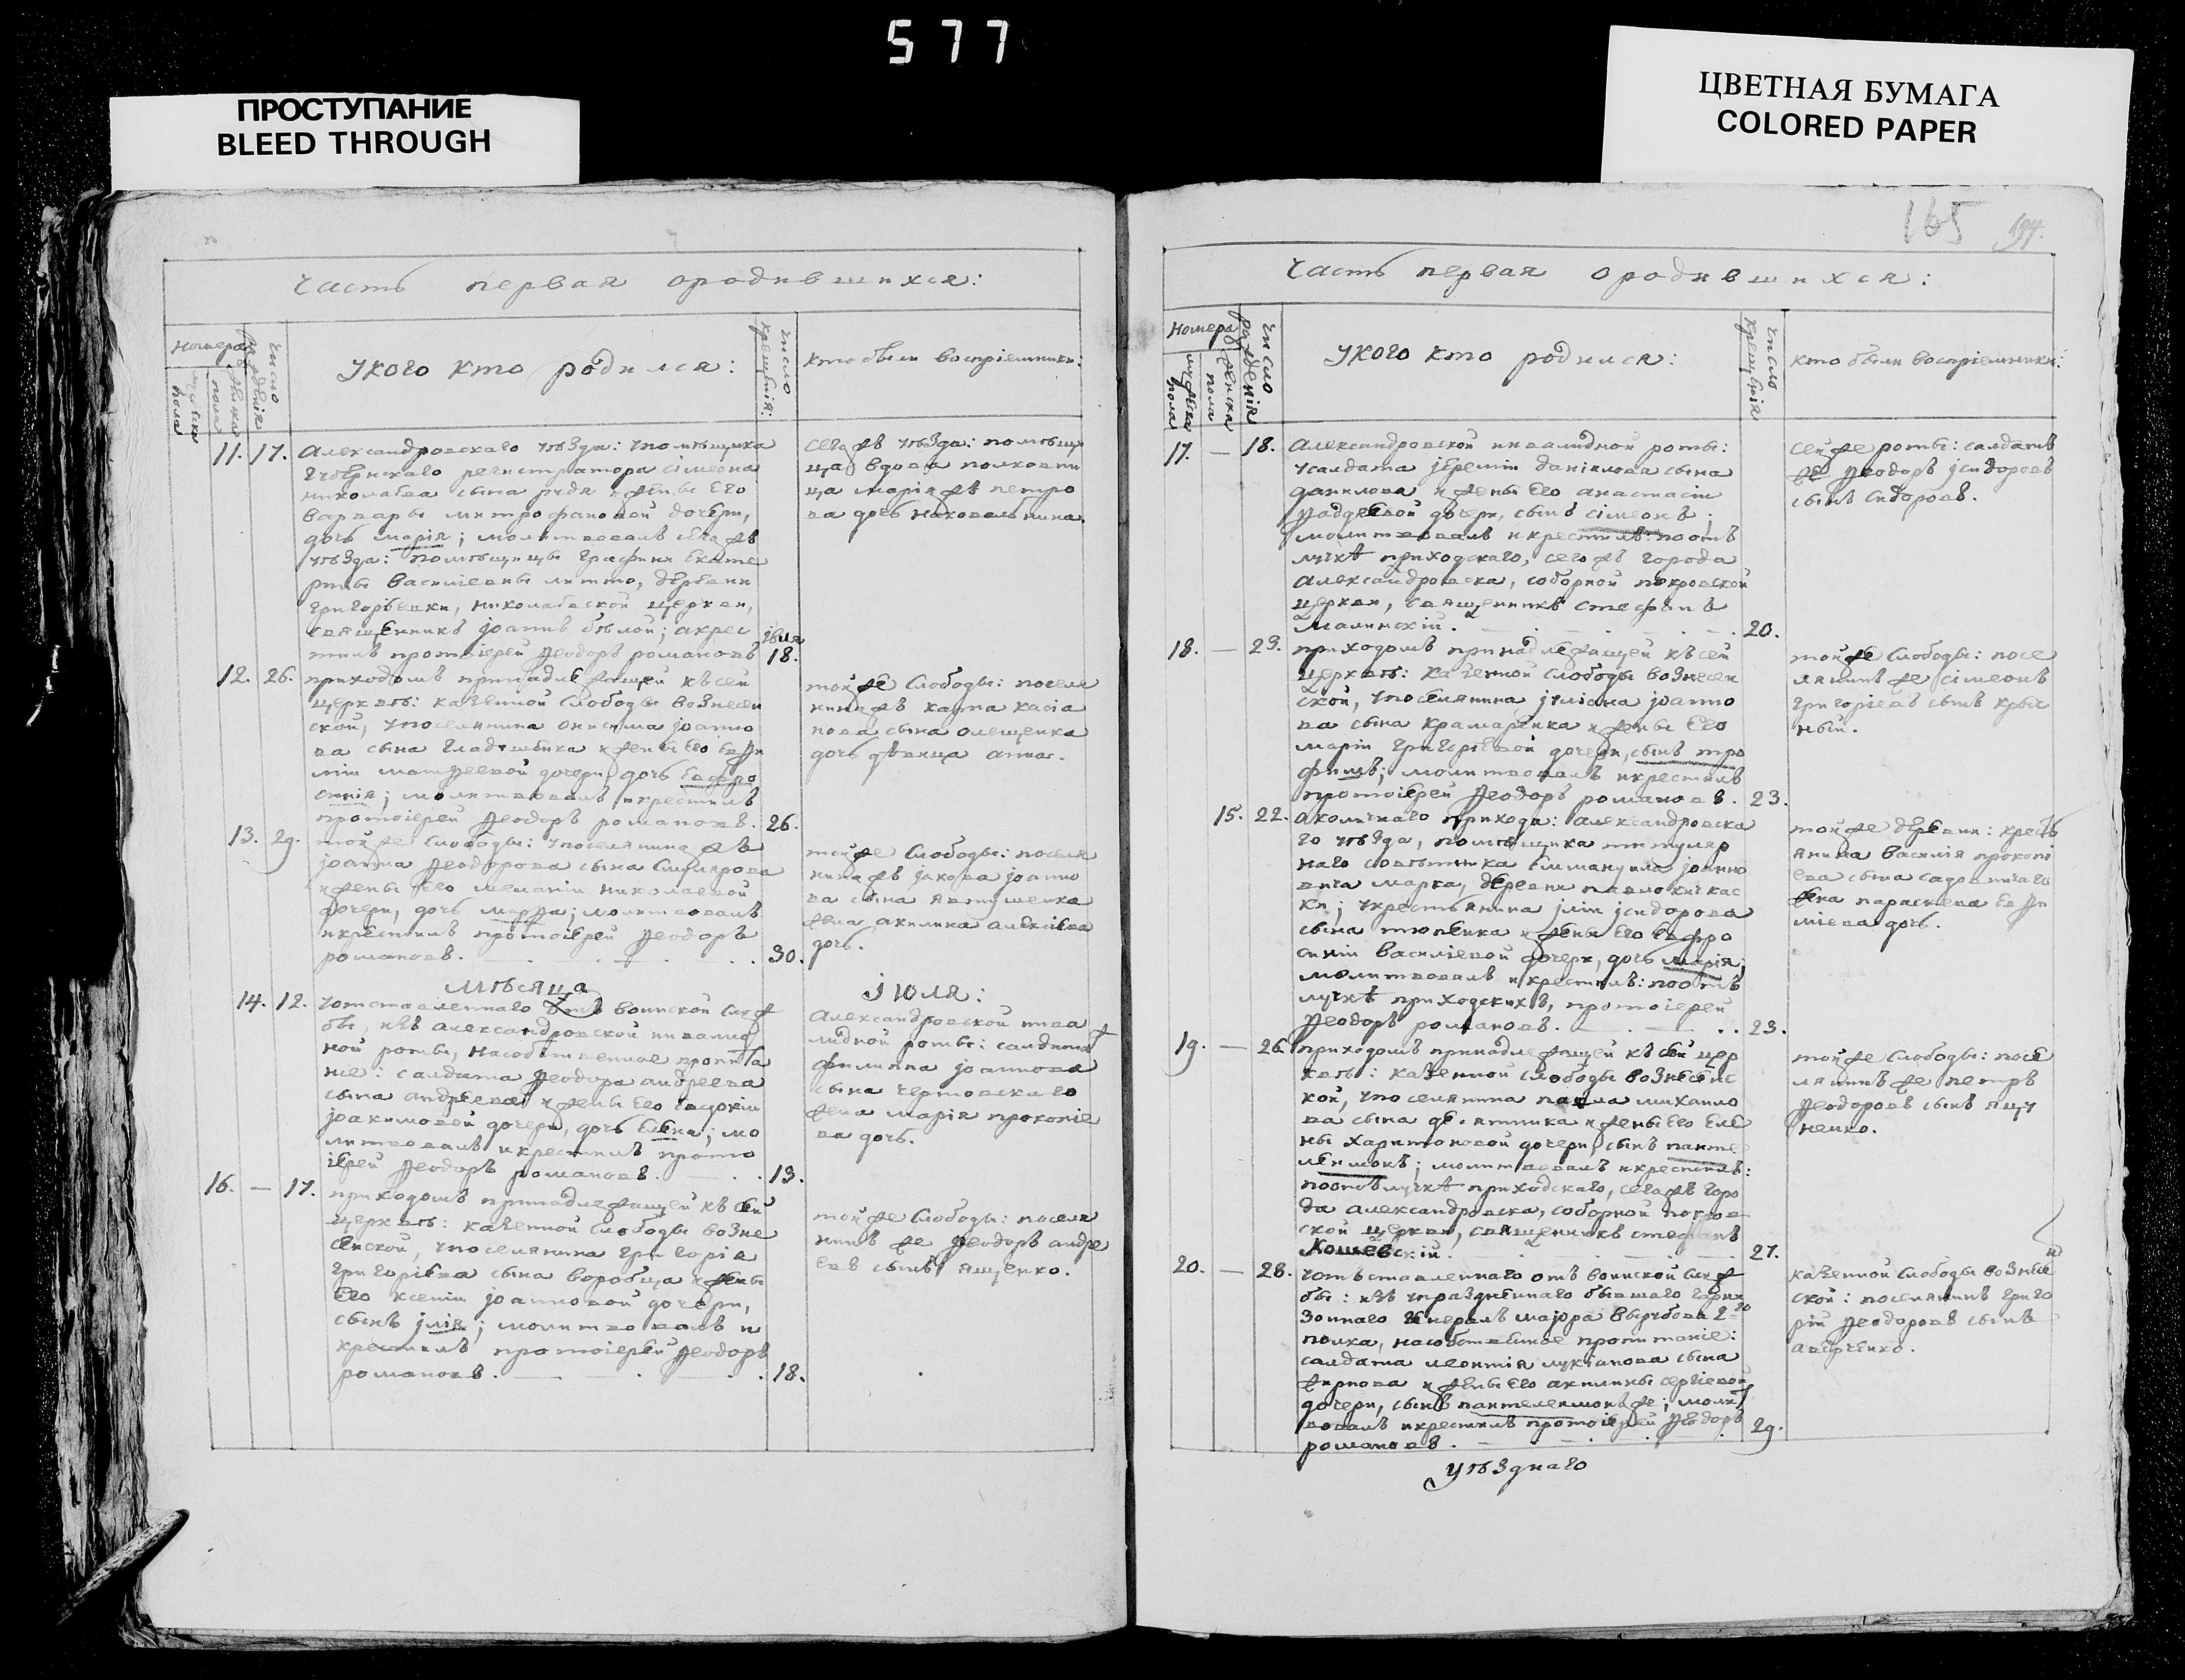 577
ПРОСТУПАНИЕ
BLEED THROUGH
ЦВЕТНАЯ БУМАГА
COLORED PAPER
165
194.
Часть первая ородившихся:
Номера
мужеска пола
женска пола
Число рождения
Укого кто родился:
Число крещенія:
кто были воспріемники:
11. 17.
Александровскаго уѣзда: упомѣщика
Губернскаго регистратора сімеона
николаева сына рудя и жены его
варвары митрофановой дочери,
дочь марія; молитвовалъ сегожъ
уѣзда: помѣщицы Графини Екате
рины василіевны литто, деревни
григорьевки, николаевской церкви,
священникъ іоаннъ бѣлой; акрес
тилъ протоіерей Ѳеодоръ романовъ
іюля
18.
сегожъ уѣзда: помѣщи
ца вдова полковни
ца маріяжъ петро
ва дочь наковальнина.
12. 26.
приходомъ принадлежащей къ сей
церквѣ: казенной слободы вознесен
ской, упоселянина онисима іоанно
ва сына гладушенка и жены его евѳи
міи матѳеевой дочери, дочь Евфро
синія; молитвовалъ и крестилъ
протоіерей Ѳеодоръ романовъ. 26.
тойже слободы: поселя
нинажъ карпа касіа
нова сына олещенка
дочь дѣвица анна.
13. 29.
тойже слободы: упоселянинажъ
іоанна Ѳеодорова сына столярова
и жены его меланіи николаевой
дочери, дочь марѳа; молитвовалъ
и крестилъ протоіерей Ѳеодоръ
романовъ. 30.
тойже слободы: поселя
нинажъ іакова іоанно
ва сына явтушенка
жена акилина алексіева
дочь.
мѣсяца
іюля:
14. 12.
уотставленнаго отъ воинской служ
бы, изъ александровской инвалид
ной роты, насобственное пропита
ніе: салдата Ѳеодора андреева
сына андреева и жены его евдокіи
іоакимовой дочери, дочь Елена; мо
литвовалъ и крестилъ прото
іерей Ѳеодоръ романовъ. 13.
Александровской инва
лидной роты: салдата
филиппа іоаннова
сына чертовскаго
жена марія прокопіе
ва дочь.
16. — 17.
приходомъ принадлежащей къ сей
церквѣ: казенной слободы возне
сенской, упоселянина григорія
григоріева сына воробца и жены
его ксеніи іоанновой дочери,
сынъ ілія; молитвовалъ и
крестилъ протоіерей Ѳеодоръ
романовъ. 18.
тойже слободы: поселя
нинъ же Ѳеодоръ андре
евъ сынъ ященко.
Часть первая ородившихся:
Номера
мужеска пола
женска пола
Число рожденія
Укого кто родился:
Число крещенія
кто были воспріемники:
17. — 18.
Александровской инвалидной роты:
усалдата іереміи даніилова сына
данилова и жены его анастасіи
Ѳаддеевой дочери, сынъ сімеонъ;
молитвовалъ и крестилъ: поотъ
лучкѣ приходскаго, сегожъ города
александровска, соборной покровской
церкви, священникъ стефанъ
малинскій. 20.
сейже роты: салдатъ
же Ѳеодоръ ісидоровъ
сынъ сидоровъ.
18. — 23.
приходомъ принадлежащей къ сей
церквѣ: казенной слободы вознесен
ской, упоселянина іуліана іоанно
ва сына крамаренка и жены его
маріи григоріевой дочери, сынъ тро
фимъ; молитвовалъ и крестилъ
протоіерей Ѳеодоръ романовъ. 23.
тойже слободы: посе
лянинъ же сімеонъ
григоріевъ сынъ крас
ный.
15. 22.
околичнаго прихода: александровска
го уѣзда, помѣщика титуляр
наго совѣтника Еммануила іоанно
вича марка, деревни павлокичкас
ки; укрестьянина іліи ісидорова
сына тюпенка и жены его евфро
синіи василіевой дочери, дочь марія;
молитвовалъ и крестилъ: поотъ
лучкѣ приходскихъ, протоіерей
Ѳеодоръ романовъ. 23.
тойже деревни: кресть
янина василія прокопі
ева сына садовничаго
жена параскева евѳи
міева дочь.
19. — 26.
приходомъ принадлежащей къ сей цер
квѣ: казенной слободы вознесенс
кой, упоселянина павла михаило
ва сына десятника и жены его еле
ны харитоновой дочери, сынъ панте
леимонъ; молитвовалъ и крестилъ:
поотълучкѣ приходскаго, сегожъ горо
да александровска, соборной покров
ской церкви, священникъ стефанъ
Кошевскій. 27.
тойже слободы: посе
лянинъ же петръ
Ѳеодоровъ сынъ яцу
ненко.
20. — 28.
уотъставленнаго отъ воинской служ
бы: изъ упраздненнаго бывшаго гарни
зоннаго генералъ маіора вырубова 2го
полка, насобственное пропитаніе:
салдата леонтія лукіанова сына
жирнова и жены его акилины сергіевой
дочери, сынъ пантелеимонъ же; молит
вовалъ и крестилъ протоіерей Ѳеодоръ
романовъ. 29.
казенной слободы вознесен
ской: поселянинъ григо
рій Ѳеодоровъ сынъ
аверченко.
уѣзднаго